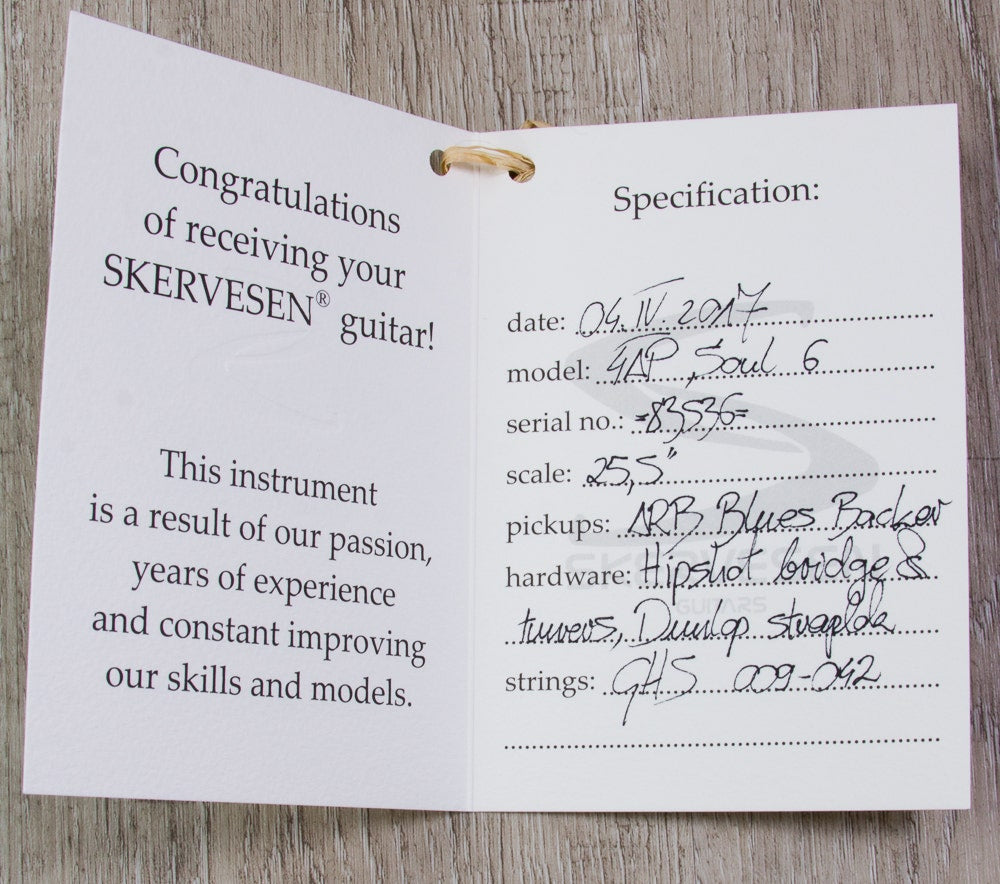 Congratulations
of receiving your
SKERVESEN® guitar!
This instrument
is a result of our passion,
years of experience
and constant improving
our skills and models.
Specification:
date: 04.IV.2017
model: 4AP Soul 6
serial no.: =83536=
scale: 25,5"
pickups: ARB Blues Backer
hardware: Hipshot bridge &
tuners, Dunlop straplok
strings: GHS 009-042
SKERVESEN
GUITARS